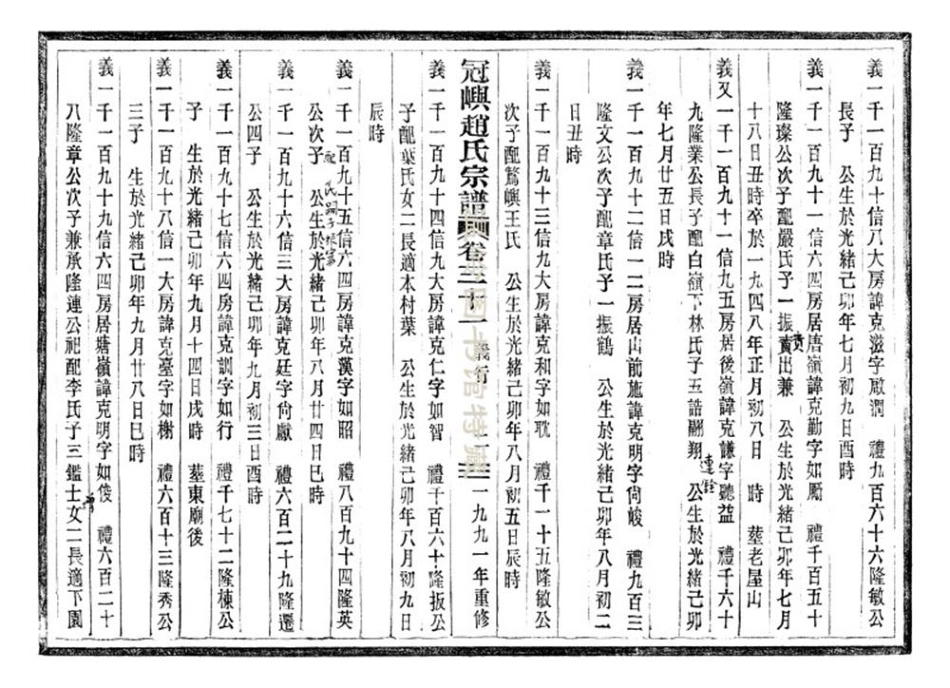 義一千一百九十信八大房諱克滋字啟潤　禮九百六十六隆敏公
長子　公生於光緒己卯年七月初九日酉時
義一千一百九十一信六四房居唐嶺諱克勤字如勵　禮千百五十
隆璨公次子配嚴氏子一振賣出兼　公生於光緒己卯年七月
十八日丑時卒於一九四八年正月初八日　時　塟老屋山
義又一千一百九十一信九五房居後嶺諱克謙字聽益　禮千六十
九隆業公長子配白嶺下林氏子五誥翩翔　公生於光緒己卯
年七月廿五日戌時
義一千一百九十二信一二房居山前施諱克明字尙峻　禮九百三
隆文公次子配章氏子一振鶴　公生於光緒己卯年八月初二
日丑時
義一千一百九十三信九大房諱克和字如耽　禮千一十五隆敏公
次子配鶩嶼王氏　公生於光緒己卯年八月初五日辰時
冠嶼趙氏宗譜　卷三十一　義行　一九九一年重修
義一千一百九十四信九大房諱克仁字如智　禮千百六十隆扳公
子配葉氏女二長適本村葉　公生於光緒己卯年八月初九日
辰時
義一千一百九十五信六四房諱克漢字如昭　禮八百九十四隆英
公次子　公生於光緒己卯年八月廿四日巳時
義一千一百九十六信三大房諱克廷字尙獻　禮六百二十九隆遷
公四子　公生於光緒己卯年九月初三日酉時
義一千一百九十七信六四房諱克訓字如行　禮千七十二隆棟公
子　生於光緒己卯年九月十四日戌時　塟東廟後
義一千一百九十八信一大房諱克臺字如榭　禮六百十三隆秀公
三子　生於光緒己卯年九月廿八日巳時
義一千一百九十九信六四房居塘嶺諱克明字如俊　禮六百二十
八隆章公次子兼承隆連公祀配李氏子三鑑士女二長適下園